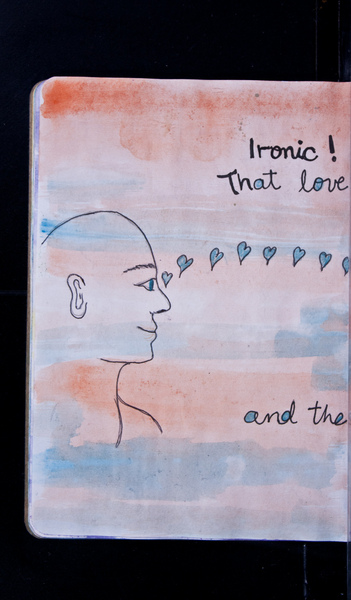 Ironic!
That love
and the